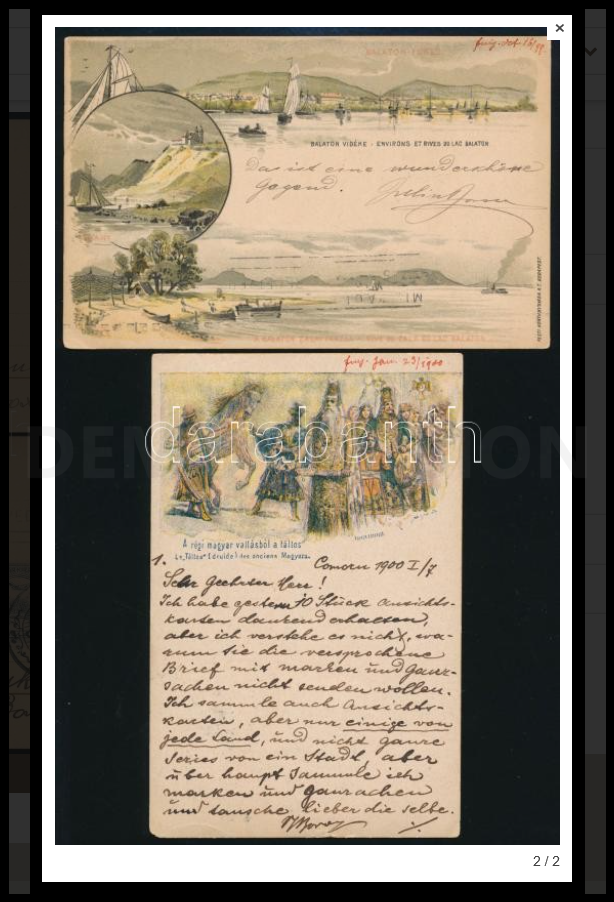 ×
BALATON-FÜRED
BALATON VIDÉKE - ENVIRONS ET RIVES DU LAC BALATON
Das ist eine wunderschöne
Gegend.
TIHANY
darabanth
Jan. 23/1900
A régi magyar vallásból a táltos
Le „Táltos" (druide) des anciens Magyars.
1.
Comorn 1900 I/7
Sehr Geehrter Herr!
Ich habe gestern 10 Stück Ansichts-
karten dankend erhalten,
aber ich verstehe es nicht, wa-
rum Sie die versprochene
Brief mit marken und Ganz-
sachen nicht senden wollen.
Ich sammle auch Ansichts-
karten, aber nur einige von
jede Land, und nicht ganze
Series von ein Stadt, aber
über haupt Sammle ich
marken und Ganzsachen
und tausche lieber die selbe.
2 / 2